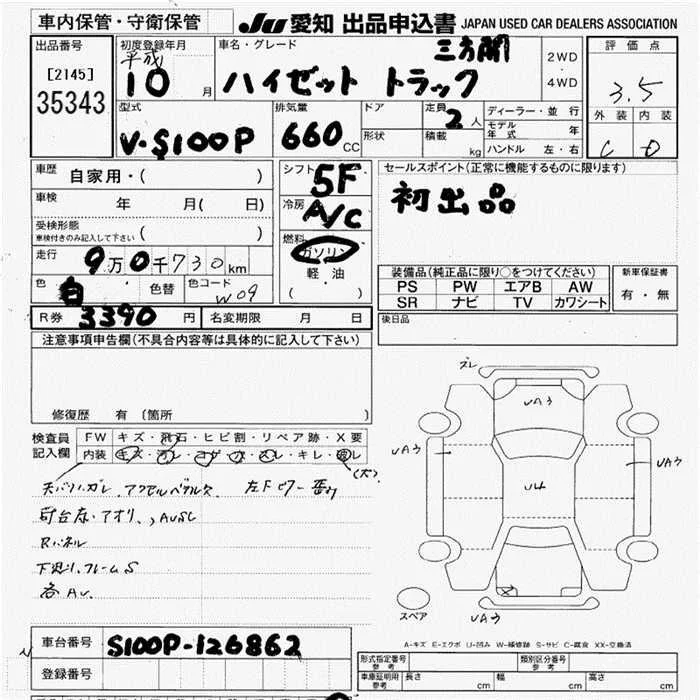 車内保管・守衛保管
JU 愛知 出品申込書 JAPAN USED CAR DEALERS ASSOCIATION
出品番号
[2145]
35343
初度登録年月
平成
10 月
車名・グレード
三方開
ハイゼット トラック
2WD
4WD
評価点
3.5
外装 内装
C D
型式
V-S100P
排気量
660 CC
ドア
形状
定員
2 人
積載
kg
ディーラー・並行
モデル年式 年
ハンドル 左・右
車歴
自家用・( )
車検
年 月( 日)
受検形態
車検付きのみ記入して下さい
走行
9万0千730km
色
白
色替
色コード
W09
シフト
5F
冷房
A/C
燃料
ガソリン
軽・油
( )
セールスポイント(正常に機能するものに限ります)
初出品
装備品(純正品に限り○をつけてください)
PS PW エアB AW
SR ナビ TV カワシート
新車保証書
有・無
R券 3390 円
名変期限 月 日
後日品
注意事項申告欄(不具合内容等は具体的に記入して下さい)
修復歴 有 〔箇所 〕
検査員
記入欄
FW キズ・飛石・ヒビ割・リペア跡・X要
内装
(大)
Rパネル
各AU.
ズレ
UA3
UA3
UA3
U4
UA3
スペア
A-キズ E-エクボ U-凹み W-補修跡 S-サビ C-腐食 XX-交換済
車台番号
S100P-126862
登録番号
形式指定番号
参考
類別区分番号
参考
車庫証明用
参考
長さ cm
幅 cm
高さ cm